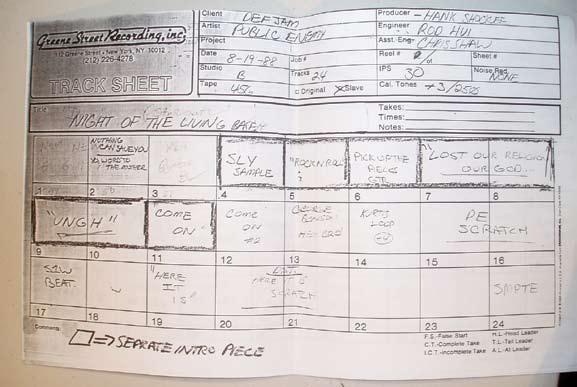 Greene Street Recording, inc.
112 Greene Street • New York, NY 10012
(212) 226-4278
TRACK SHEET
Client DEF JAM
Artist PUBLIC ENEMY
Project
Date 8-19-88 Job#
Studio B Tracks 24
Tape 456 □ Original Slave
Producer - HANK SHOCKLEE
Engineer ROD HUI
Asst. Eng- CHRIS SHAW
Reel # Sheet #
IPS 30 Noise Red. NONE
Cal. Tones +3/250
Title NIGHT OF THE LIVING
Takes:
Times:
Notes:
NOTHING CAN SAVE YOU
YO, WORD TO THE MOTHER
SLY SAMPLE
"ROCK N ROLL"
PICK UP THE PIECE GTR.
"LOST OUR RELIGION OUR GOD...
1 2 3 4 5 6 7 8
"UNGH"
"COME ON"
COME ON #2
GEORGE
KURTIS LOOP
SCRATCH
9 10 11 12 13 14 15 16
BEAT.
"HERE IT IS"
HERE IT IS SCRATCH
SMPTE
17 18 19 20 21 22 23 24
Comments
=> SEPERATE INTRO PIECE
F.S.-False Start H.L.-Head Leader
C.T.-Complete Take T.L.-Tail Leader
I.C.T.-Incomplete Take A.L.-All Leader